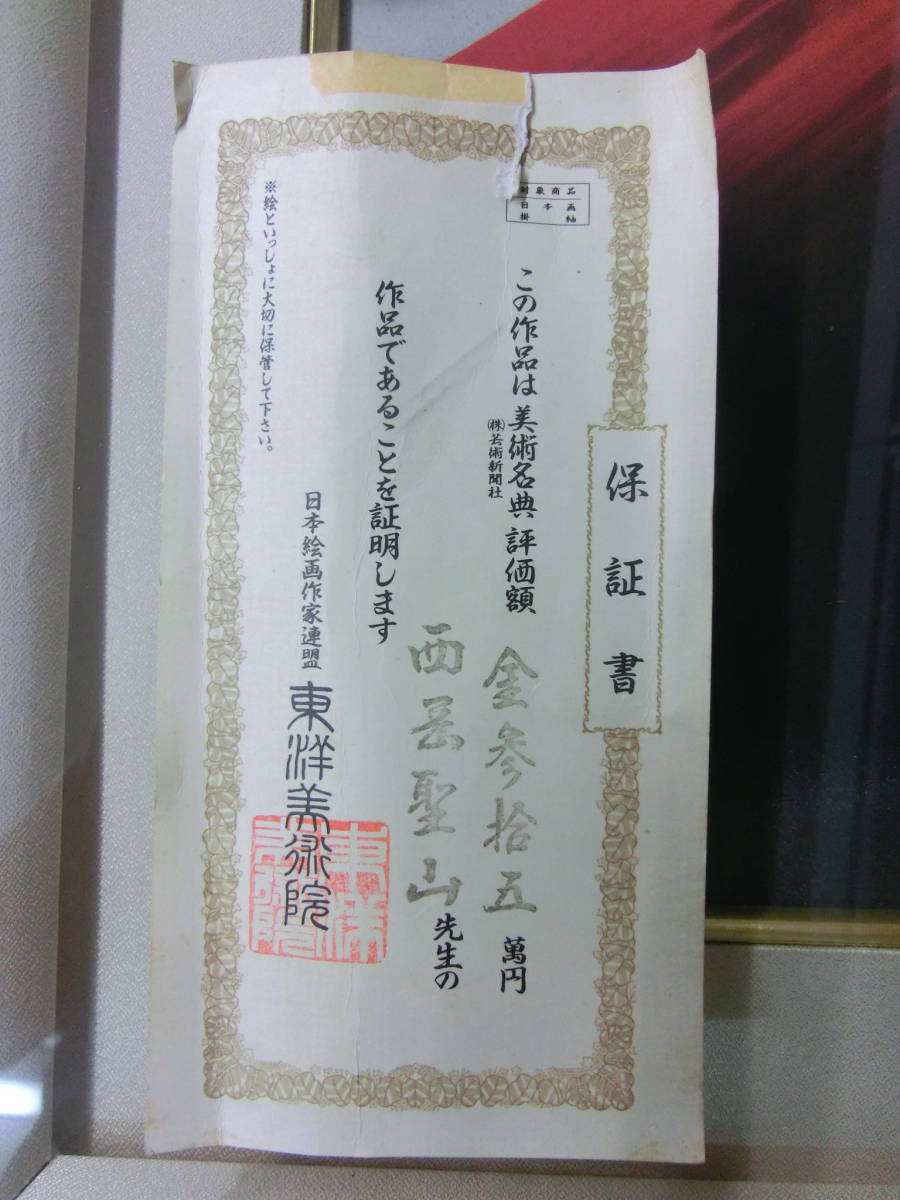 保証書
対象商品
日本画
掛軸
この作品は美術名典評価額 金参拾五萬円
㈱芸術新聞社
西芸聖山先生の
作品であることを証明します
日本絵画作家連盟 東洋美術院
※絵といっしょに大切に保管して下さい。